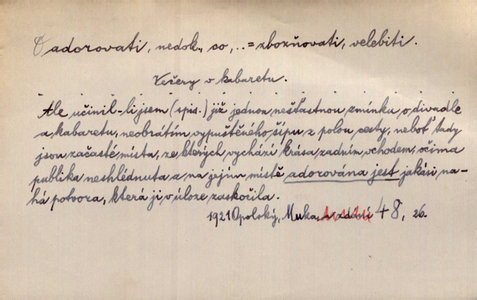 adorovati, nedok., so, .. = zbožňovati, velebiti.
Večery v kabaretu.
Ale učinil-li jsem (spis.) již jednou nešťastnou zmínku o divadle
a kabaretu, neobrátím vypuštěného šípu z polou cesty, neboť tady
jsou začasté místa, ze kterých vychází krása zadním vchodem, očima
publika neshlédnuta a na jejím místě adorována jest jakási na-
há potvora, která ji v úloze zaskočila.
1921 Opolský, Muka 48, 26.